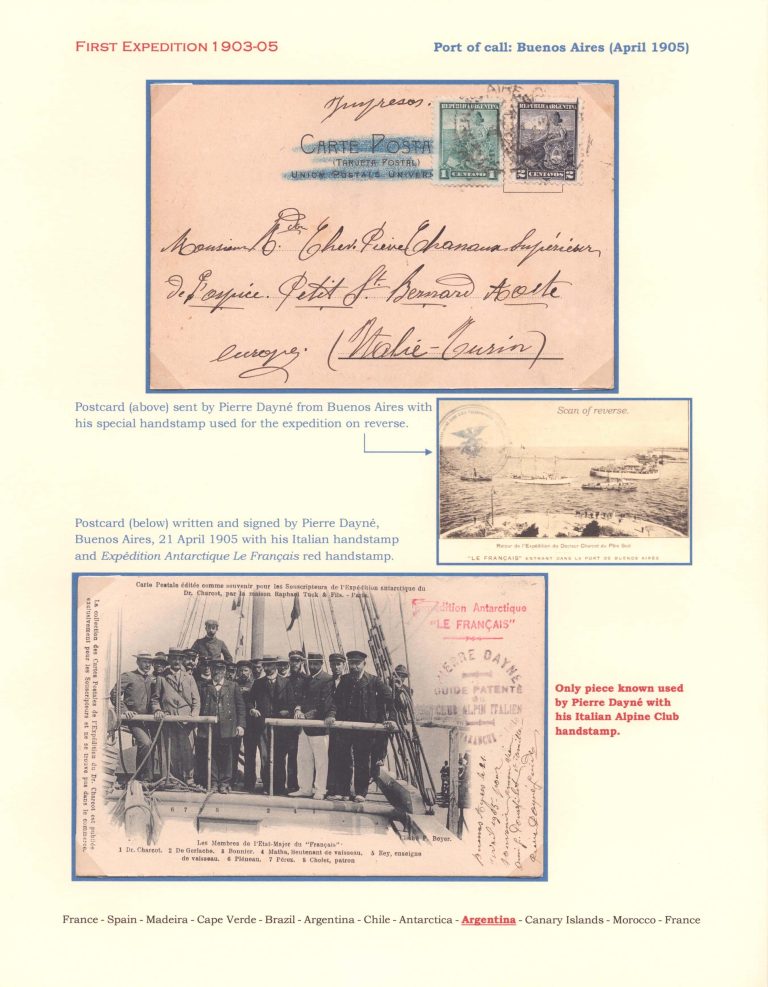 FIRST EXPEDITION 1903-05
Port of call: Buenos Aires (April 1905)
Impresos.
CARTE POSTA
(TARJETA POSTAL)
UNION POSTALE UNIVER
REPÚBLICA ARGENTINA
1 CENTAVO 1
REPÚBLICA ARGENTINA
2 CENTAVOS 2
AIRE
Monsieur Chanoux Supérieur
de l'ospice. Petit St. Bernard Aoste
europe. (Italie-Turin)
Postcard (above) sent by Pierre Dayné from Buenos Aires with
his special handstamp used for the expedition on reverse.
Scan of reverse.
Retour de l'Expédition du Docteur Charcot du Pôle Sud
"LE FRANÇAIS" ENTRANT DANS LE PORT DE BUENOS AIRES
Postcard (below) written and signed by Pierre Dayné,
Buenos Aires, 21 April 1905 with his Italian handstamp
and Expédition Antarctique Le Français red handstamp.
Carte Postale éditée comme souvenir pour les Souscripteurs de l'Expédition antarctique du
Dr. Charcot, par la maison Raphael Tuck & Fils. - Paris
La collection des Cartes Postales de l'Expédition du Dr. Charcot est publiée
exclusivement pour les Souscripteurs et ne se trouve pas dans le commerce.
Expédition Antarctique
"LE FRANÇAIS"
PIERRE DAYNÉ
GUIDE PATENTÉ
DU
CLUB ALPIN ITALIEN
6 7 8 5 2 4 1
Cliché F. Boyer.
Les Membres de l'État-Major du "Français"
1 Dr. Charcot. 2 De Gerlache. 3 Bonnier. 4 Matha, lieutenant de vaisseau. 5 Rey, enseigne
de vaisseau. 6 Pléneau. 7 Pérez. 8 Cholet, patron
Only piece known used
by Pierre Dayné with
his Italian Alpine Club
handstamp.
France - Spain - Madeira - Cape Verde - Brazil - Argentina - Chile - Antarctica - Argentina - Canary Islands - Morocco - France